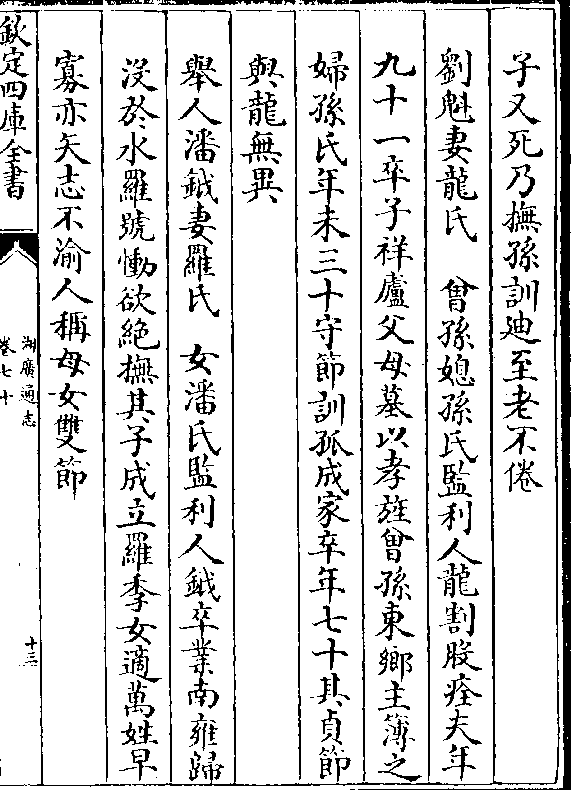 子又死乃撫孫訓廸至老不倦
劉魁妻龍氏　曾孫媳孫氏監利人龍割股痊夫年
九十一卒子祥廬父母墓以孝旌曾孫東鄉主簿之
婦孫氏年未三十守節訓孤成家卒年七十其貞節
與龍無異
舉人潘鉞妻羅氏　女潘氏監利人鉞卒業南雍歸
沒於水羅號慟欲絶撫其子成立羅季女適萬姓早
寡亦矢志不渝人稱母女雙節
欽定四庫全書
湖廣通志
卷七十
十三